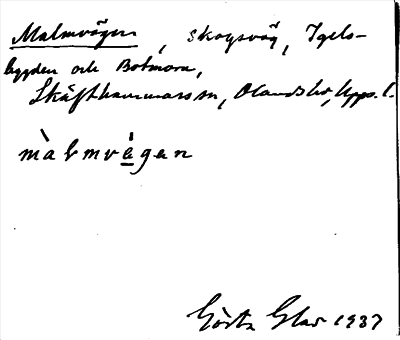 Malmvägen, skogsväg, Igels-
bygden och Botmora,
Skäfthammars sn, Olands hd, Upps. l.
màlmvè̱gen
Gösta Glas 1937